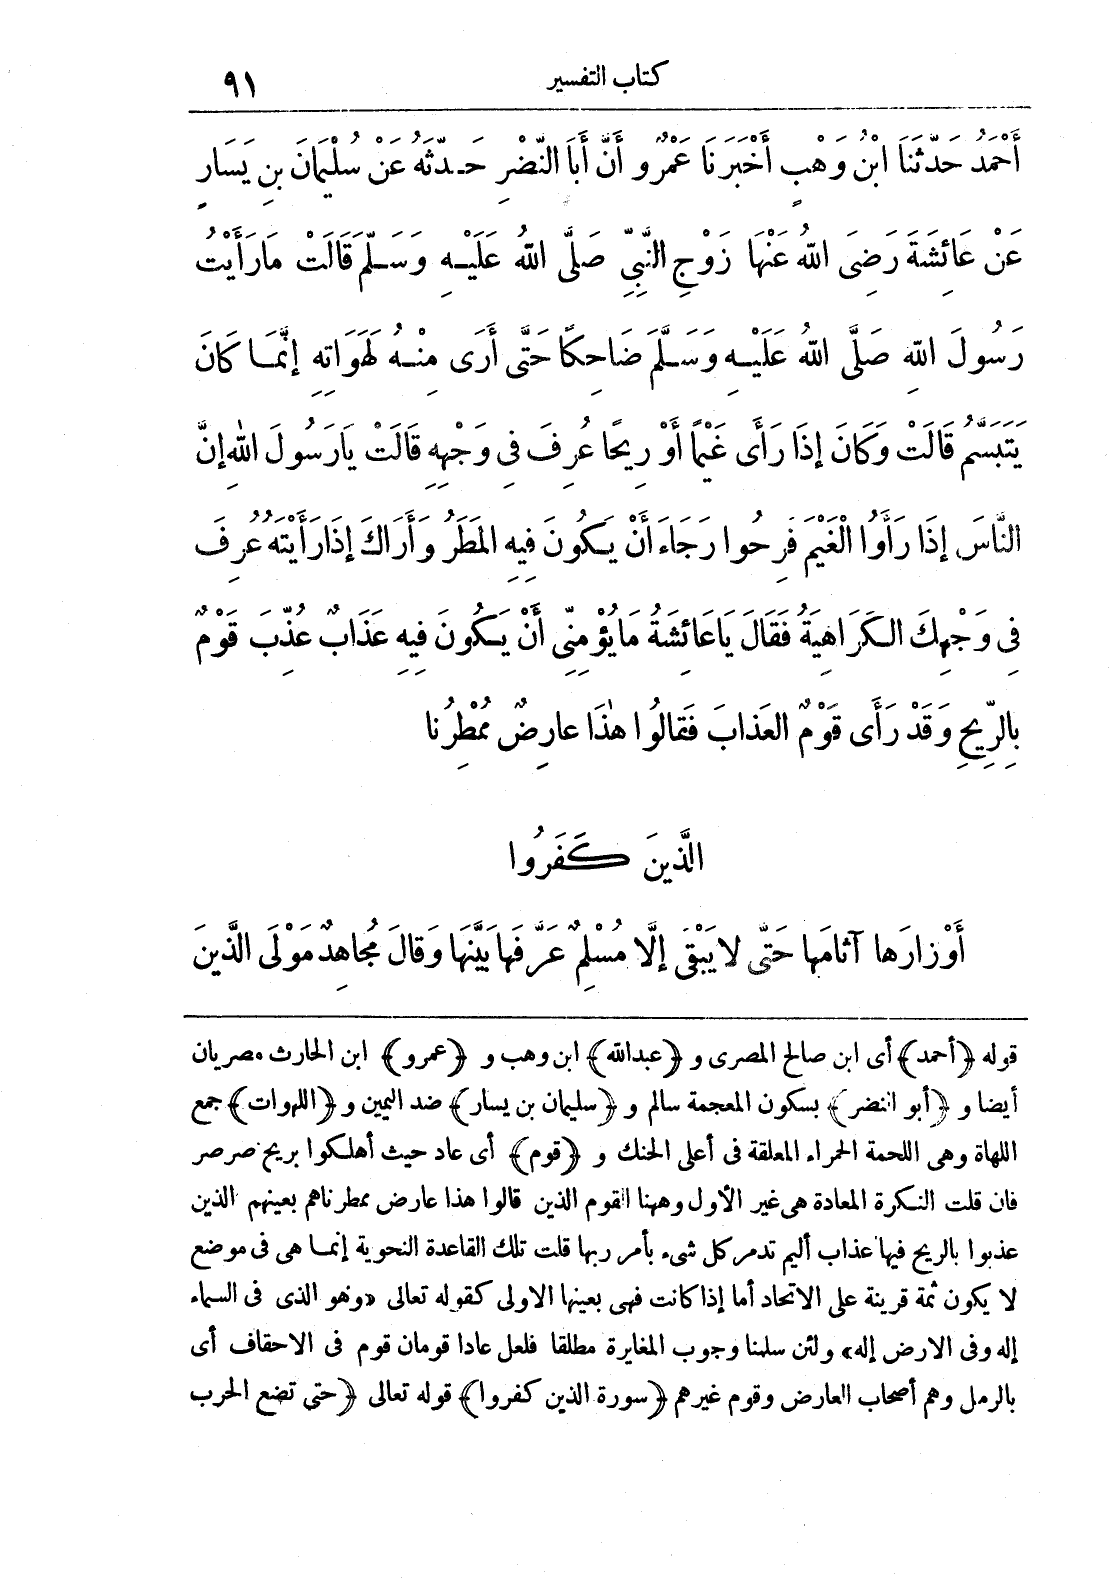 كتاب التفسير ٩١
أَحْمَدُ حَدَّثَنَا ابْنُ وَهْبٍ أَخْبَرَنَا عَمْرٌو أَنَّ أَبَا النَّضْرِ حَدَّثَهُ عَنْ سُلَيْمَانَ بنِ يَسَارٍ
عَنْ عَائِشَةَ رَضِىَ اللهُ عَنْهَا زَوْجِ النَّبِيِّ صَلَّى اللهُ عَلَيْهِ وَسَلَّمَ قَالَتْ مَارَأَيْتُ
رَسُولَ اللهِ صَلَّى اللهُ عَلَيْهِ وَسَلَّمَ ضَاحِكًا حَتَّى أَرَى مِنْهُ لَهَوَاتِهِ إِنَّمَا كَانَ
يَتَبَسَّمُ قَالَتْ وَكَانَ إِذَا رَأَى غَيْمًا أَوْ رِيحًا عُرِفَ فِى وَجْهِهِ قَالَتْ يَارَسُولَ اللهِ إِنَّ
النَّاسَ إِذَا رَأَوُا الْغَيْمَ فَرِحُوا رَجَاءَ أَنْ يَكُونَ فِيهِ المَطَرُ وَأَرَاكَ إِذَا رَأَيْتَهُ عُرِفَ
فِى وَجْهِكَ الكَرَاهِيَةُ فَقَالَ يَاعَائِشَةُ مَايُؤْمِنِّى أَنْ يَكُونَ فِيهِ عَذَابٌ عُذِّبَ قَوْمٌ
بِالرِّيحِ وَقَدْ رَأَى قَوْمٌ العَذَابَ فَقَالُوا هٰذَا عارِضٌ مُمْطِرُنا
الَّذِينَ كَفَرُوا
أَوْزارَها آثامَها حَتَّى لا يَبْقَى إلَّا مُسْلِمٌ عَرَّفَها بَيَّنَها وَقالَ مُجاهِدٌ مَوْلَى الَّذِينَ
قوله ﴿أحمد﴾ أى ابن صالح المصرى و ﴿عبدالله﴾ ابن وهب و ﴿عمرو﴾ ابن الحارث مصريان
أيضا و ﴿أبو النضر﴾ بسكون المعجمة سالم و ﴿سليمان بن يسار﴾ ضد اليمين و ﴿اللهوات﴾ جمع
اللهاة وهى اللحمة الحمراء المعلقة فى أعلى الحنك و ﴿قوم﴾ أى عاد حيث أهلكوا بريح صرصر
فان قلت النكرة المعادة هى غير الأول وههنا القوم الذين قالوا هذا عارض ممطرناهم بعينهم الذين
عذبوا بالريح فيها عذاب أليم تدمر كل شىء بأمر ربها قلت تلك القاعدة النحوية إنما هى فى موضع
لا يكون ثمة قرينة على الاتحاد أما إذا كانت فهى بعينها الاولى كقوله تعالى «وهو الذى فى السماء
إله وفى الارض إله» ولئن سلمنا وجوب المغايرة مطلقا فلعل عادا قومان قوم فى الاحقاف أى
بالرمل وهم أصحاب العارض وقوم غيرهم ﴿سورة الذين كفروا﴾ قوله تعالى ﴿حتى تضع الحرب